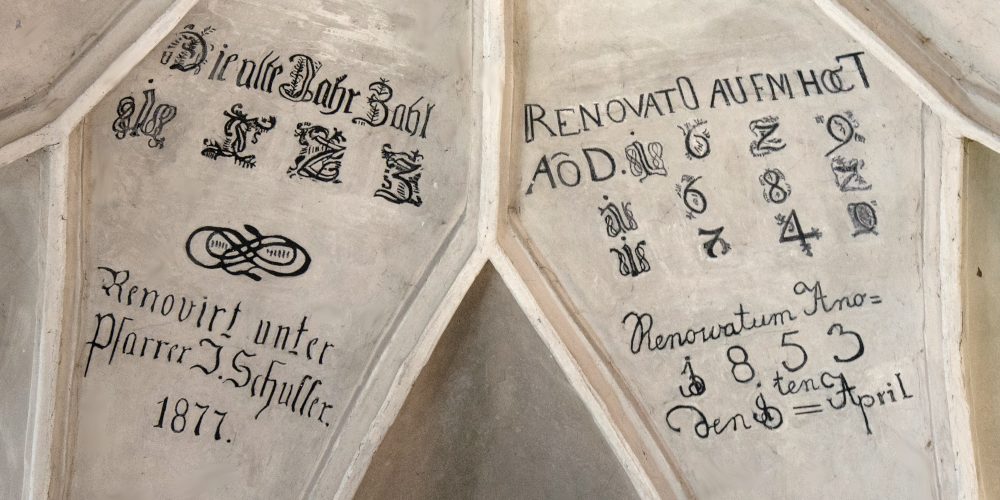 Die alte Jahr Zahl
Renovirt unter
Pfarrer J. Schuller.
1877.
RENOVATO AUFM HOCT
AÔD. 1 6 2 9
1 6 8 2
1 7 4
Renowatum Ano=
1 8. 5 3
Den 1 ten = April